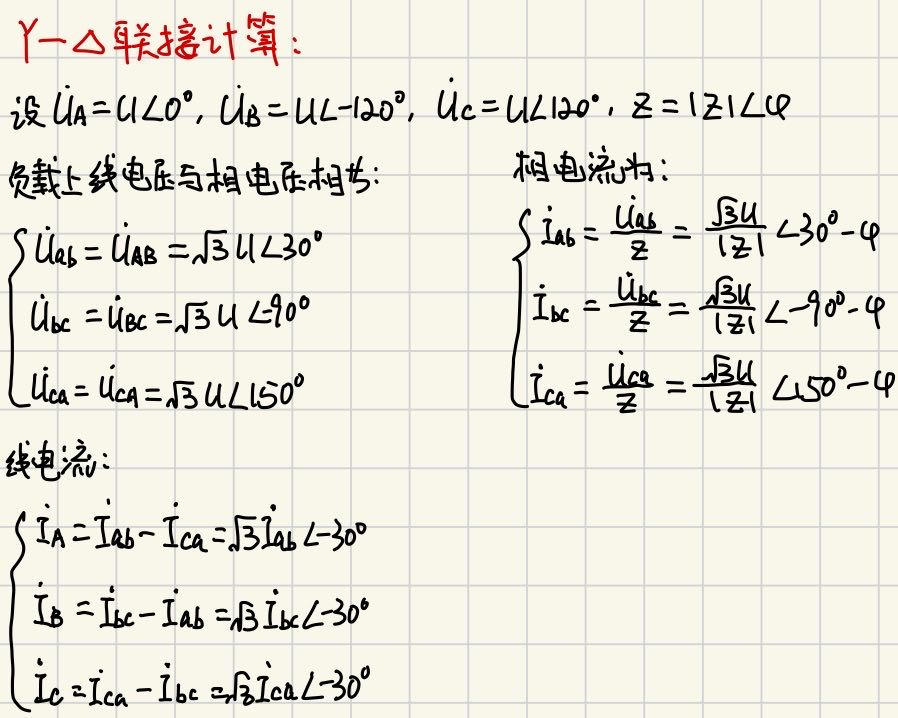 Y—△联接计算：
设 U̇A=U∠0°, U̇B=U∠-120°, U̇c=U∠120°, Z=|Z|∠φ
负载上线电压与相电压相等：
U̇ab=U̇AB=√3U∠30°
U̇bc=U̇BC=√3U∠-90°
U̇ca=U̇CA=√3U∠150°
相电流为：
İab=U̇ab/Z=√3U/|Z|∠30°-φ
İbc=U̇bc/Z=√3U/|Z|∠-90°-φ
İca=U̇ca/Z=√3U/|Z|∠150°-φ
线电流：
İA=İab-İca=√3İab∠-30°
İB=İbc-İab=√3İbc∠-30°
İc=İca-İbc=√3İca∠-30°